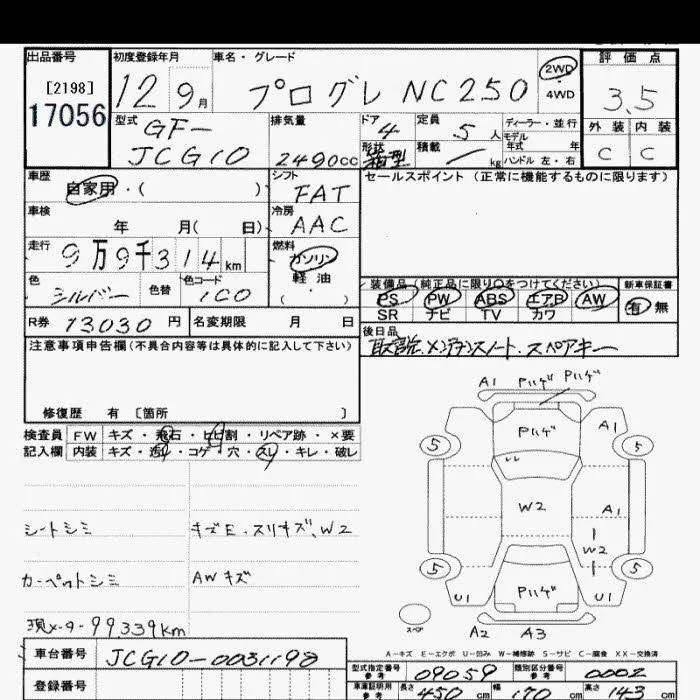 出品番号 初度登録年月 車名・グレード 評価点
[2198] 12 9月 プログレ NC250 2WD・4WD 3.5
17056
型式 排気量 ドア 定員 ディーラー・並行 外装 内装
GF- 4 5人 モデル年式 年
JCG10 2490cc 形状 箱型 積載 / kg ハンドル 左・右 C C
車歴 シフト セールスポイント (正常に機能するものに限ります)
自家用・( ) FAT
車検 冷房
年 月( 日) AAC
走行 燃料
9万9千314km ガソリン
軽油
色 色替 色コード
シルバー 1C0 ( ・ )
装備品(純正品に限り○をつけてください) 新車保証書
PS PW ABS エアB AW 有・無
SR ナビ TV カワ
R券 13030円 名変期限 月 日
後日品
取説、メンテナンスノート、スペアキー
注意事項申告欄(不具合内容等は具体的に記入して下さい)
修復歴 有 〔箇所 〕
検査員 FW キズ・飛石・ヒビ割・リペア跡・×要
記入欄 内装 キズ・汚れ・コゲ・穴・スレ・キレ・破レ
シートシミ キズE・スリキズ、W2
カーペットシミ AWキズ
現メーター99339km
A1 Pハゲ Pハゲ
Pハゲ A1
5 5
レレ
W2 A1
W2
5 5
U1 Pハゲ U1
スペア A2 A3
A-キズ E-エクボ U-凹み W-補修跡 S-サビ C-腐食 XX-交換済
車台番号 JCG10-0031198
登録番号
型式指定番号 参考 09059 類別区分番号 参考 0002
車庫証明用 参考 長さ 450cm 幅 170cm 高さ 143cm